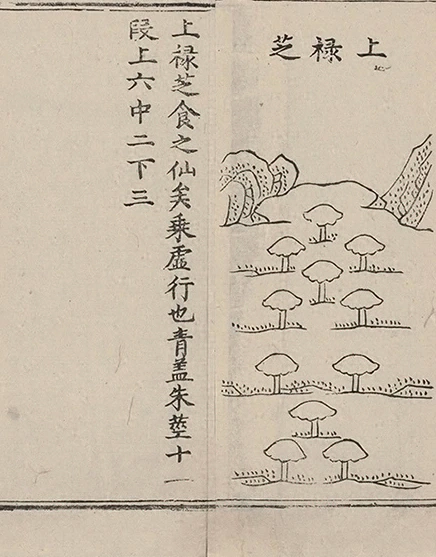 上禄芝
上禄芝食之仙矣乗虚行也青盖朱莖十一
段上六中二下三